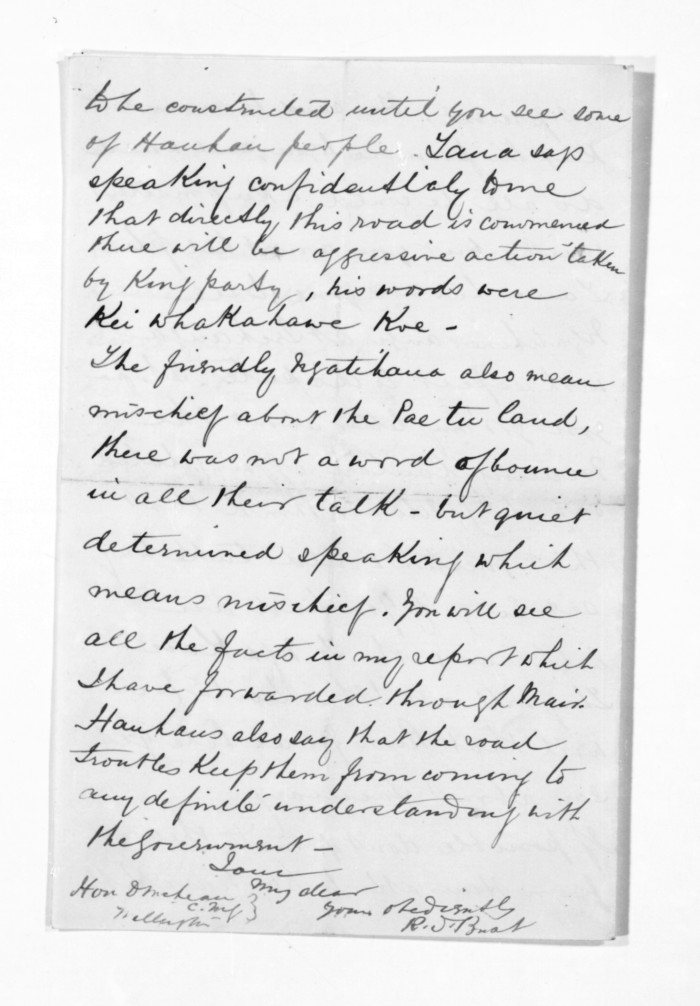 to be constructed until you see some
of Hauhau people. Tana says
speaking confidentialy to me
that directly this road is commenced
there will be aggressive action taken
by King party, his words were
Kei whakahawe Koe -
The friendly Ngatihaua also mean
mischief about the Pae tu land,
there was not a word of bounce
in all their talk - but quiet
determined speaking which
means mischief. You will see
all the facts in my report which
I have forwarded through Mair.
Hauhaus also say that the road
troubles Keep them from coming to
any definite understanding with
the Government -
I am
my dear
Yours obediently
Hon D McLean
C.M.G
Wellington